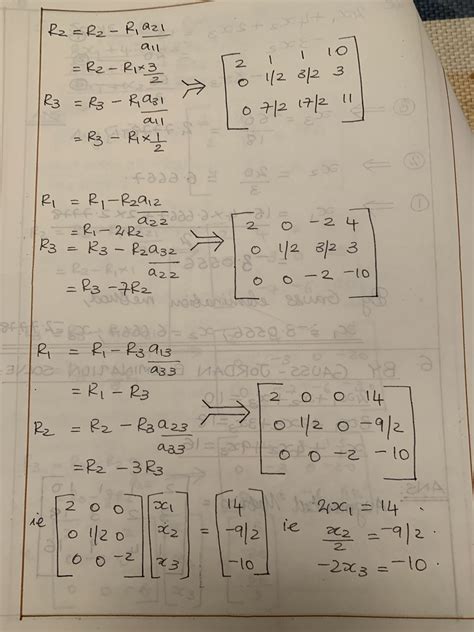 R2 = R2 - R1 a21/a11
= R2 - R1 × 3/2
R3 = R3 - R1 a31/a11
= R3 - R1 × 1/2
→
[2 1 1 10
0 1/2 3/2 3
0 7/2 17/2 11]
R1 = R1 - R2 a12/a22
= R1 - 2R2
R3 = R3 - R2 a32/a22
= R3 - 7R2
→
[2 0 -2 4
0 1/2 3/2 3
0 0 -2 -10]
R1 = R1 - R3 a13/a33
= R1 - R3
R2 = R2 - R3 a23/a33
= R2 - 3R3
→
[2 0 0 14
0 1/2 0 -9/2
0 0 -2 -10]
ie [2 0 0 [x1 = [14 ie 2x1 = 14
0 1/2 0 x2 -9/2 x2/2 = -9/2
0 0 -2] x3] -10] -2x3 = -10